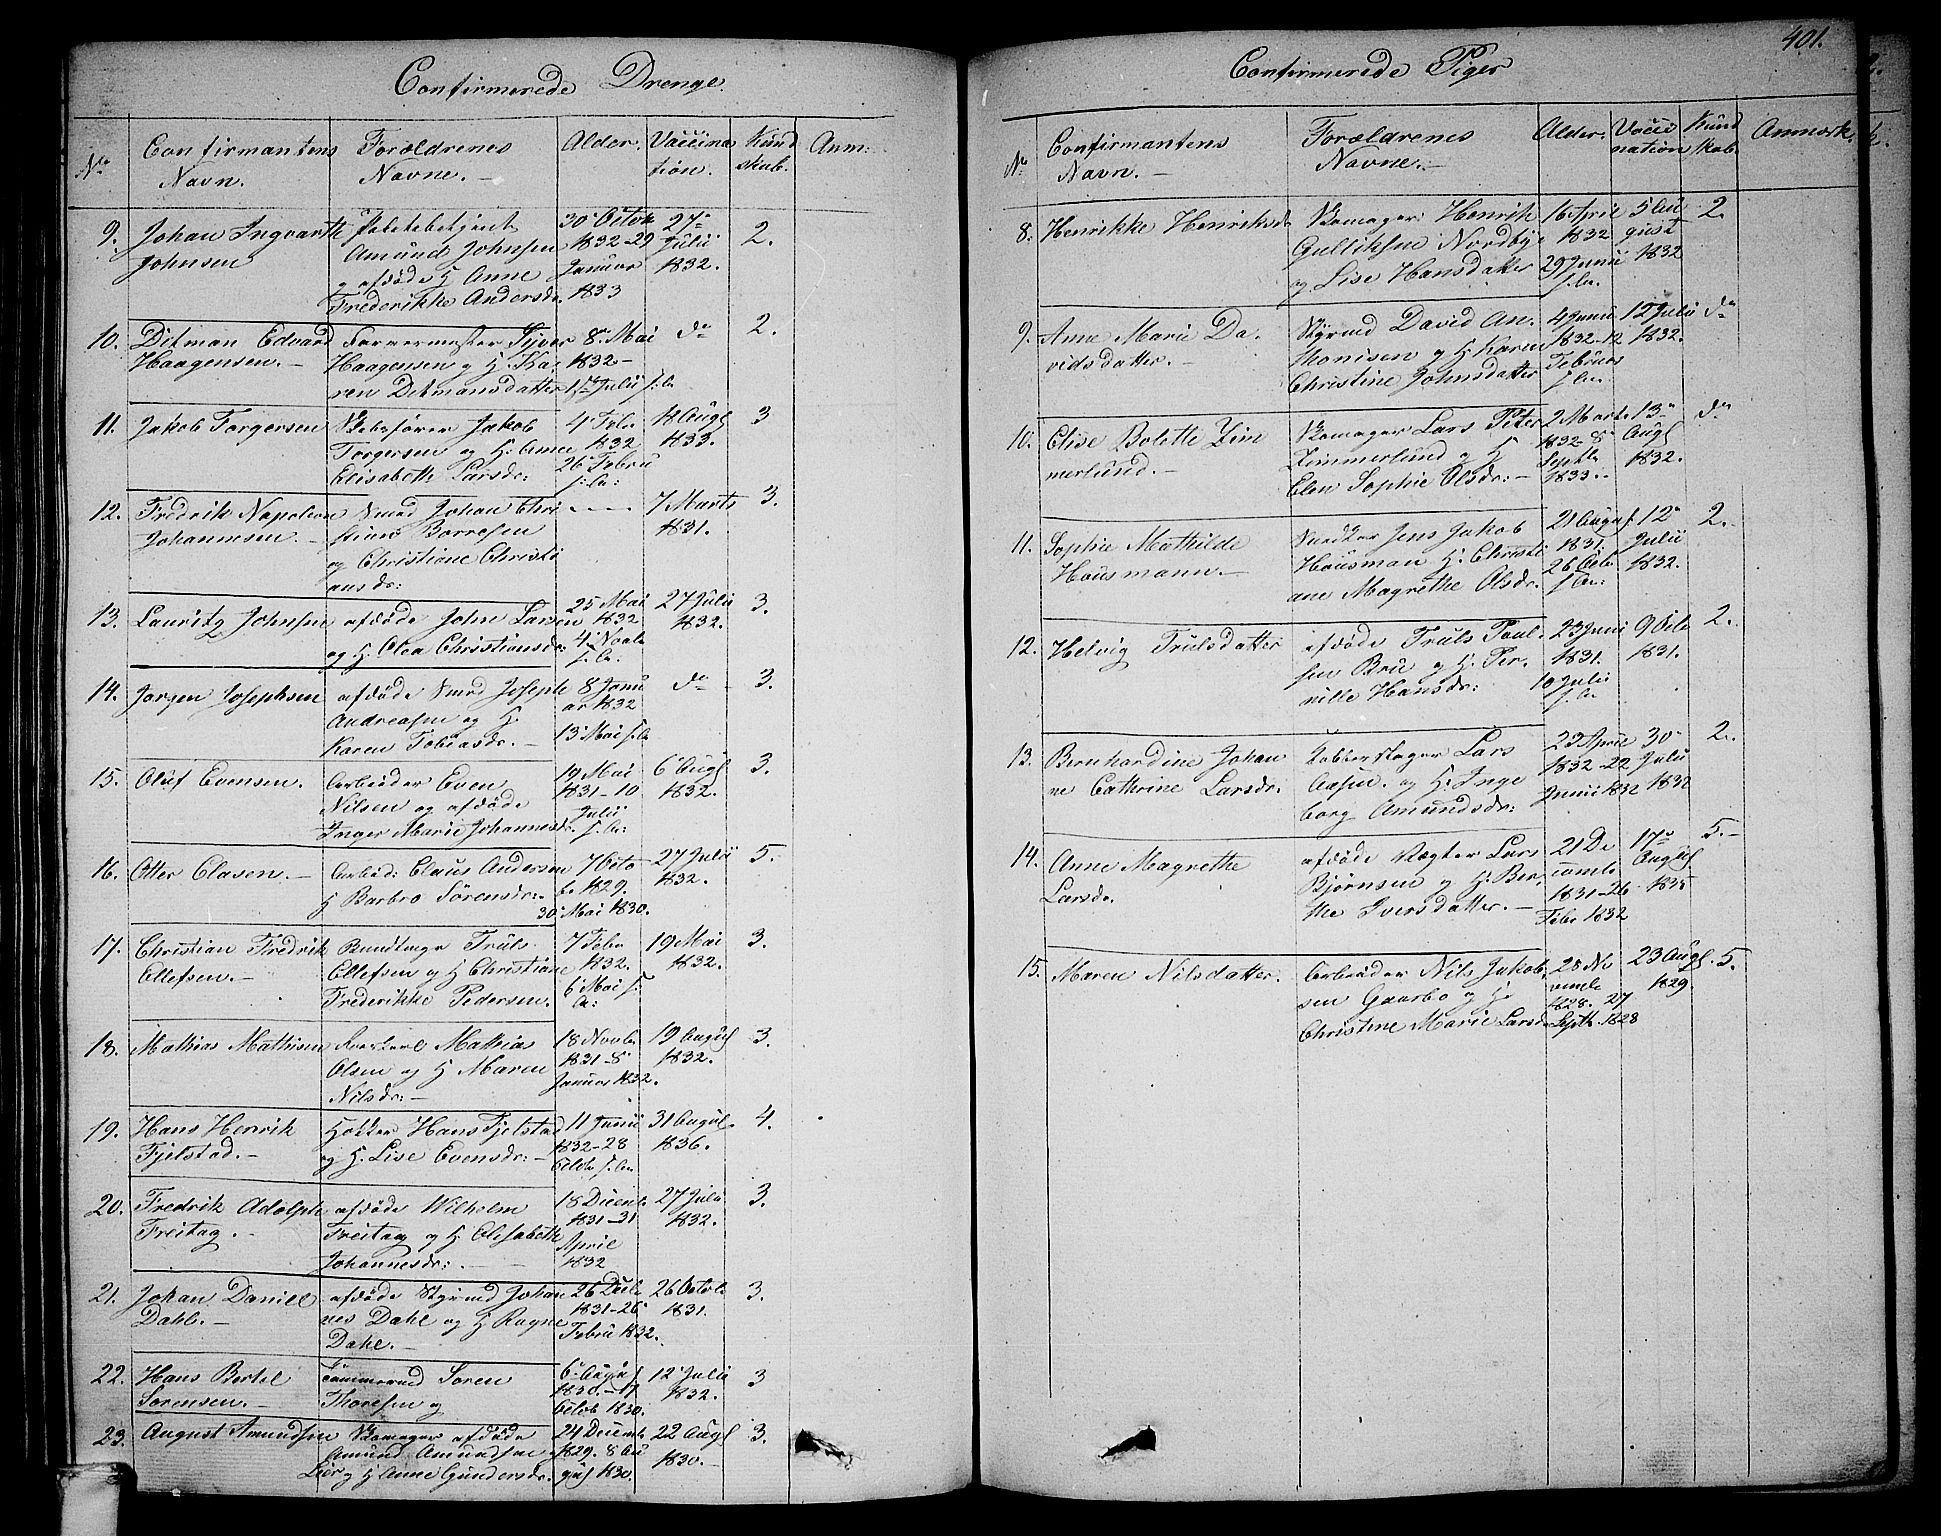 401.
Confirmerede Drenge.
No
Confirmantens
Navn.
Forældrenes
Navne. —
Alder.
Vaccina
tion.
Kund
skab.
Anm:
9. Johan Ingvarth
Johnsen
Amund Johnsen
og afdøde H Anne
Frederikke Andersdr.
30 Octob
1832-29
Januar
1833
27de
Julii
1832.
2.
10. Ditman Edvard
Haagensen. —
Farvermester Syver
Haagensen og H. Ka
ren Ditmansdatter
8de Mai
1832-
17de Julii s. A.
do
2.
11. Jakob Torgersen
Skibsfører Jakob
Torgersen og H: Anne
Elisabeth Larsdr:
4 Febr
1832
26 Febru
s: A:
18 Augs
1833.
3
12. Fredrik Napoleon
Johannesen. —
Smed Johan Chri
stian Borresen
og Christiane Christi
ansdr:
7 Marts
1831.
3.
13. Lauritz Johnsen
afdøde John Larsen
og H. Olea Christiansdr:
25 Mai
1832
4 Novbr
s. A.
27 Julii
1832.
3.
14. Jørgen Josephsen
afdøde Smed Joseph
Andreasen og H.
Karen Tobiasdr. —
8 Janu
ar 1832
13 Mai s. A
do
3.
15. Oluf Evensen.
Arbeider Even
Nilsen og afdøde
Inger Marie Johannesdr.
19 Mai
1831-10
Julii
s. A:
6 Augs
1832.
3.
16. Otter Clasen. —
Arbeid: Claus Andersen
H Barbro Sørensdr:
7 Octo
b. 1829.
30 Mai 1830.
27 Julii
1832.
5.
17. Christian Fredrik
Ellefsen. —
Bundtmager Truls
Ellefsen og H Christiane
Frederikke Pedersen.
7 Febr
1832.
6 Mai s.
A:
19 Mai
1832.
3.
18. Mathias Mathisen
Mathias
Olsen og H Maren
Nilsdr: —
18 Novbr
1831-8de
Januar 1832.
19 August
1832.
3.
19. Hans Henrik
Fjelstad. —
Høkker Hans Fjelstad
og H. Lise Evensdr: —
11 Junii
1832-28
Octbr s. A
31 August
1836.
4.
20. Fredrik Adolph
Freitag. —
afdøde Wilhelm
Freitag og H Elisabeth
Johannesdr: —
18 Decemb
1831-31
April
1832
27 Julii
1832.
3.
21. Johan Daniel
Dahl. —
afdøde Styrmd Johan
nes Dahl og H. Ragne
Dahl. —
26 Decb
1831-26
Febru 1832.
26 Octob
1831.
3.
22. Hans Bertel
Sørensen. —
Tømmermd Soren
Thoresen og
6 August
1830.-17
Octob 1830.
12 Julii
1832.
3
23. August Amundsen
Skomager afdøde
Amund Amundsen
Lier og H Anne Gundersdr.
24 Decemb
1829. 8 Au
gus 1830.
22 Augs
1830.
3.
Confirmerede Piger
Nr
Confirmantens
Navn. —
Forældrenes
Navne. —
Alder.
Vacci
nation
Kund
skab.
Anmærk.
8. Henrikke Henriksdr
Skomager: Henrik
Gulliksen Nordbye
og Lise Hansdatter
16 April
1832
29 Junii
s. A.
5 Au
gust
1832
2.
9. Anne Marie Da
vidsdatter. —
Styrmd David An
thonisen og H. Karen
Christine Johnsdatter
4 Junii
1832-12
Februar
s. A.
12 Julii
1832.
do
10. Elise Bolette Zim
merlund. —
Skomager Lars Peter
Zimmerlund og H
Elen Sophie Olsdr: —
2 Marts
1832 8de
Septbr
1833.
13de
Augs
1832.
do
11. Sophie Mathilde
Housmann. —
Snedker Jens Jakob
Housman H. Christi
ane Magrethe Olsdr.
21 August
1831.
26 Octb
s. A:
12de
Julii
1832.
2.
12. Helvig Trulsdatter
afdøde Truls Paul
sen Bru og H. Per
nille Hansdr:
23 Juni
1831.
10 Julii
s. A
9 Octb
1831.
2.
13. Bernhardine Johan
ne Cathrine Larsdr.
Kobberslager Lars
Aasen. og H: Inge
borg Amundsdr:
23 April
1832-22
Junii 1832
30de
Julii
1832
2.
14. Anne Magrethe
Larsdr.
afdøde Vægter Lars
Bjørnsen og H. Ber
the Iversdatter. —
21 De
cemb
1831-26
Febr 1832
17de
August
1835
5. —
15. Maren Nilsdatter.
Arbeider Nils Jakob
sen Gaarbo og H.
Christine Marie Larsdr
28 No
vemb
1828. 27
Septbr. 1828
23 Augs.
1829.
5.